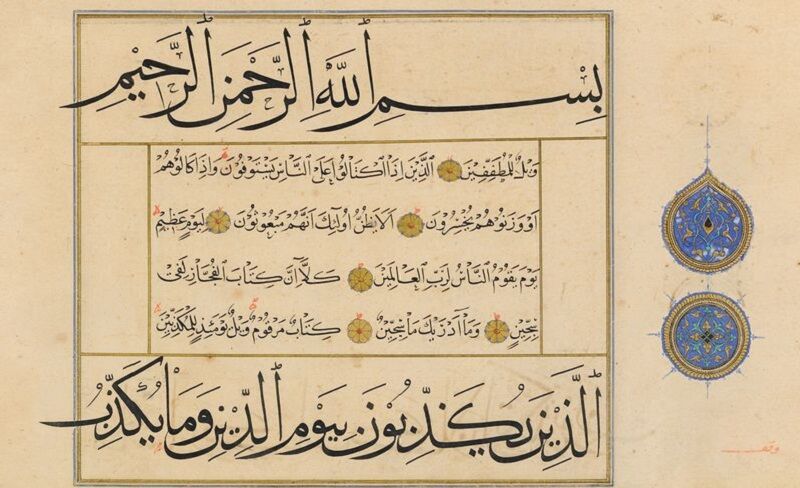 بِسْمِ اللهِ الرَّحْمٰنِ الرَّحِيْمِ
وَيْلٌ لِلْمُطَفِّفِيْنَ الَّذِيْنَ اِذَا اكْتَالُوْا عَلَى النَّاسِ يَسْتَوْفُوْنَ وَاِذَا كَالُوْهُمْ
اَوْ وَزَنُوْهُمْ يُخْسِرُوْنَ اَلَا يَظُنُّ اُولٰئِكَ اَنَّهُمْ مَبْعُوْثُوْنَ لِيَوْمٍ عَظِيْمٍ
يَوْمَ يَقُوْمُ النَّاسُ لِرَبِّ الْعَالَمِيْنَ كَلَّا اِنَّ كِتَابَ الْفُجَّارِ لَفِيْ
سِجِّيْنٍ وَمَا اَدْرٰيكَ مَا سِجِّيْنٌ كِتَابٌ مَرْقُوْمٌ وَيْلٌ يَوْمَئِذٍ لِلْمُكَذِّبِيْنَ
الَّذِيْنَ يُكَذِّبُوْنَ بِيَوْمِ الدِّيْنِ وَمَا يُكَذِّبُ